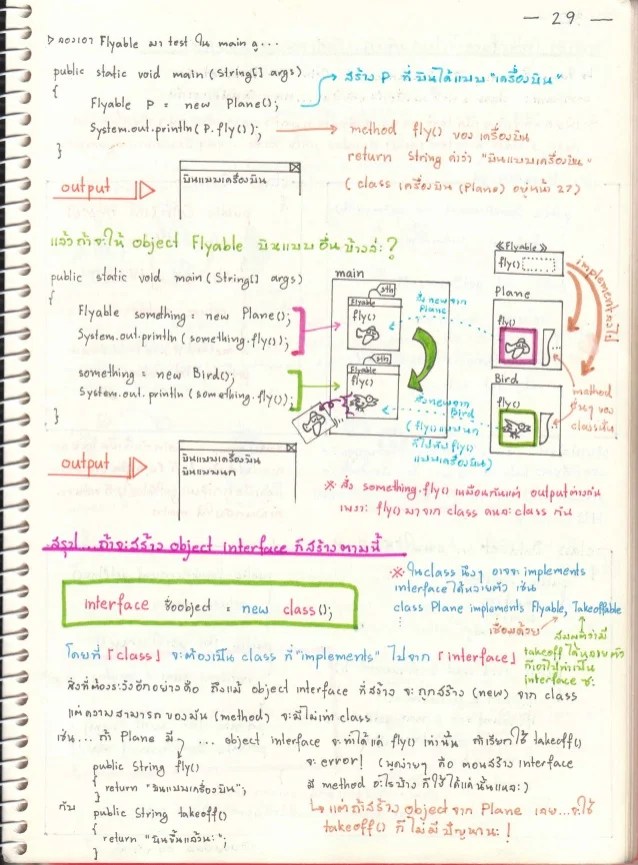 — 29 —
▷ ลองเอา Flyable มา test ใน main ดู...
public static void main (String[] args)
{
Flyable P = new Plane();
System.out.println (P.fly());
}
สร้าง P ที่บินได้แบบ "เครื่องบิน"
method fly() ของ เครื่องบิน
return String คำว่า "บินแบบเครื่องบิน"
(class เครื่องบิน (Plane) อยู่หน้า 27)
output
บินแบบเครื่องบิน
แล้วถ้าจะให้ object Flyable บินแบบอื่นบ้างล่ะ?
public static void main (String[] args)
{
Flyable something = new Plane();
System.out.println (something.fly());
something = new Bird();
System.out.println (something.fly());
}
main
sth
Flyable
fly()
sth
Flyable
fly()
สั่ง new จาก
Plane
สั่ง new จาก
Bird
(fly() แบบนก
ก็ไปทับ fly()
แบบเครื่องบิน)
≪Flyable≫
fly()
Plane
fly()
Bird
fly()
implement ลงไป
method
อื่นๆ ของ
class นั้น
output
บินแบบเครื่องบิน
บินแบบนก
※ สั่ง something.fly() เหมือนกันแต่ output ต่างกัน
เพราะ fly() มาจาก class คนละ class กัน
สรุป...ถ้าจะสร้าง object interface ก็สร้างตามนี้
interface ชื่อobject = new class();
※ ใน class นึงๆ อาจจะ implements
interface ได้หลายตัว เช่น
class Plane implements Flyable, Takeoffable
เชื่อมด้วย
สมมติว่ามี
takeoff ได้หลายตัว
ก็เอาไปทำเป็น
interface ซะ
โดยที่「class」จะต้องเป็น class ที่ "implements" ไปจาก「interface」
สิ่งที่ต้องระวังอีกอย่างคือ ถึงแม้ object interface ที่สร้าง จะถูกสร้าง (new) จาก class
แต่ความสามารถของมัน (method) จะมีไม่เท่า class
เช่น...ถ้า Plane มี ... object interface จะทำได้แค่ fly() เท่านั้น ถ้าเรียกใช้ takeoff()
จะ error! (พูดง่ายๆ คือ ตอนสร้าง interface
มี method อะไรบ้าง ก็ใช้ได้แค่นั้นแหละ)
public String fly()
{
return "บินแบบเครื่องบิน";
}
กับ public String takeoff()
{
return "บินขึ้นแล้วนะ";
}
↳ แต่ถ้าสร้าง object จาก Plane เลย...จะใช้
takeoff() ก็ไม่มีปัญหานะ!